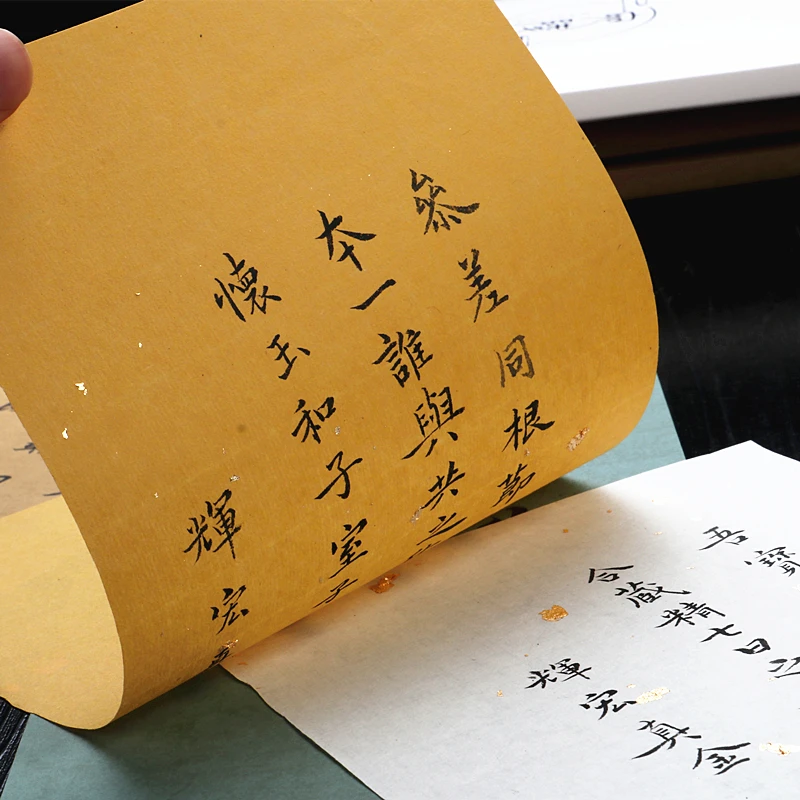 參差同根節
本一誰與共之
懷玉和子室子
輝宏
吾寶
合蔵精七日
輝宏真金